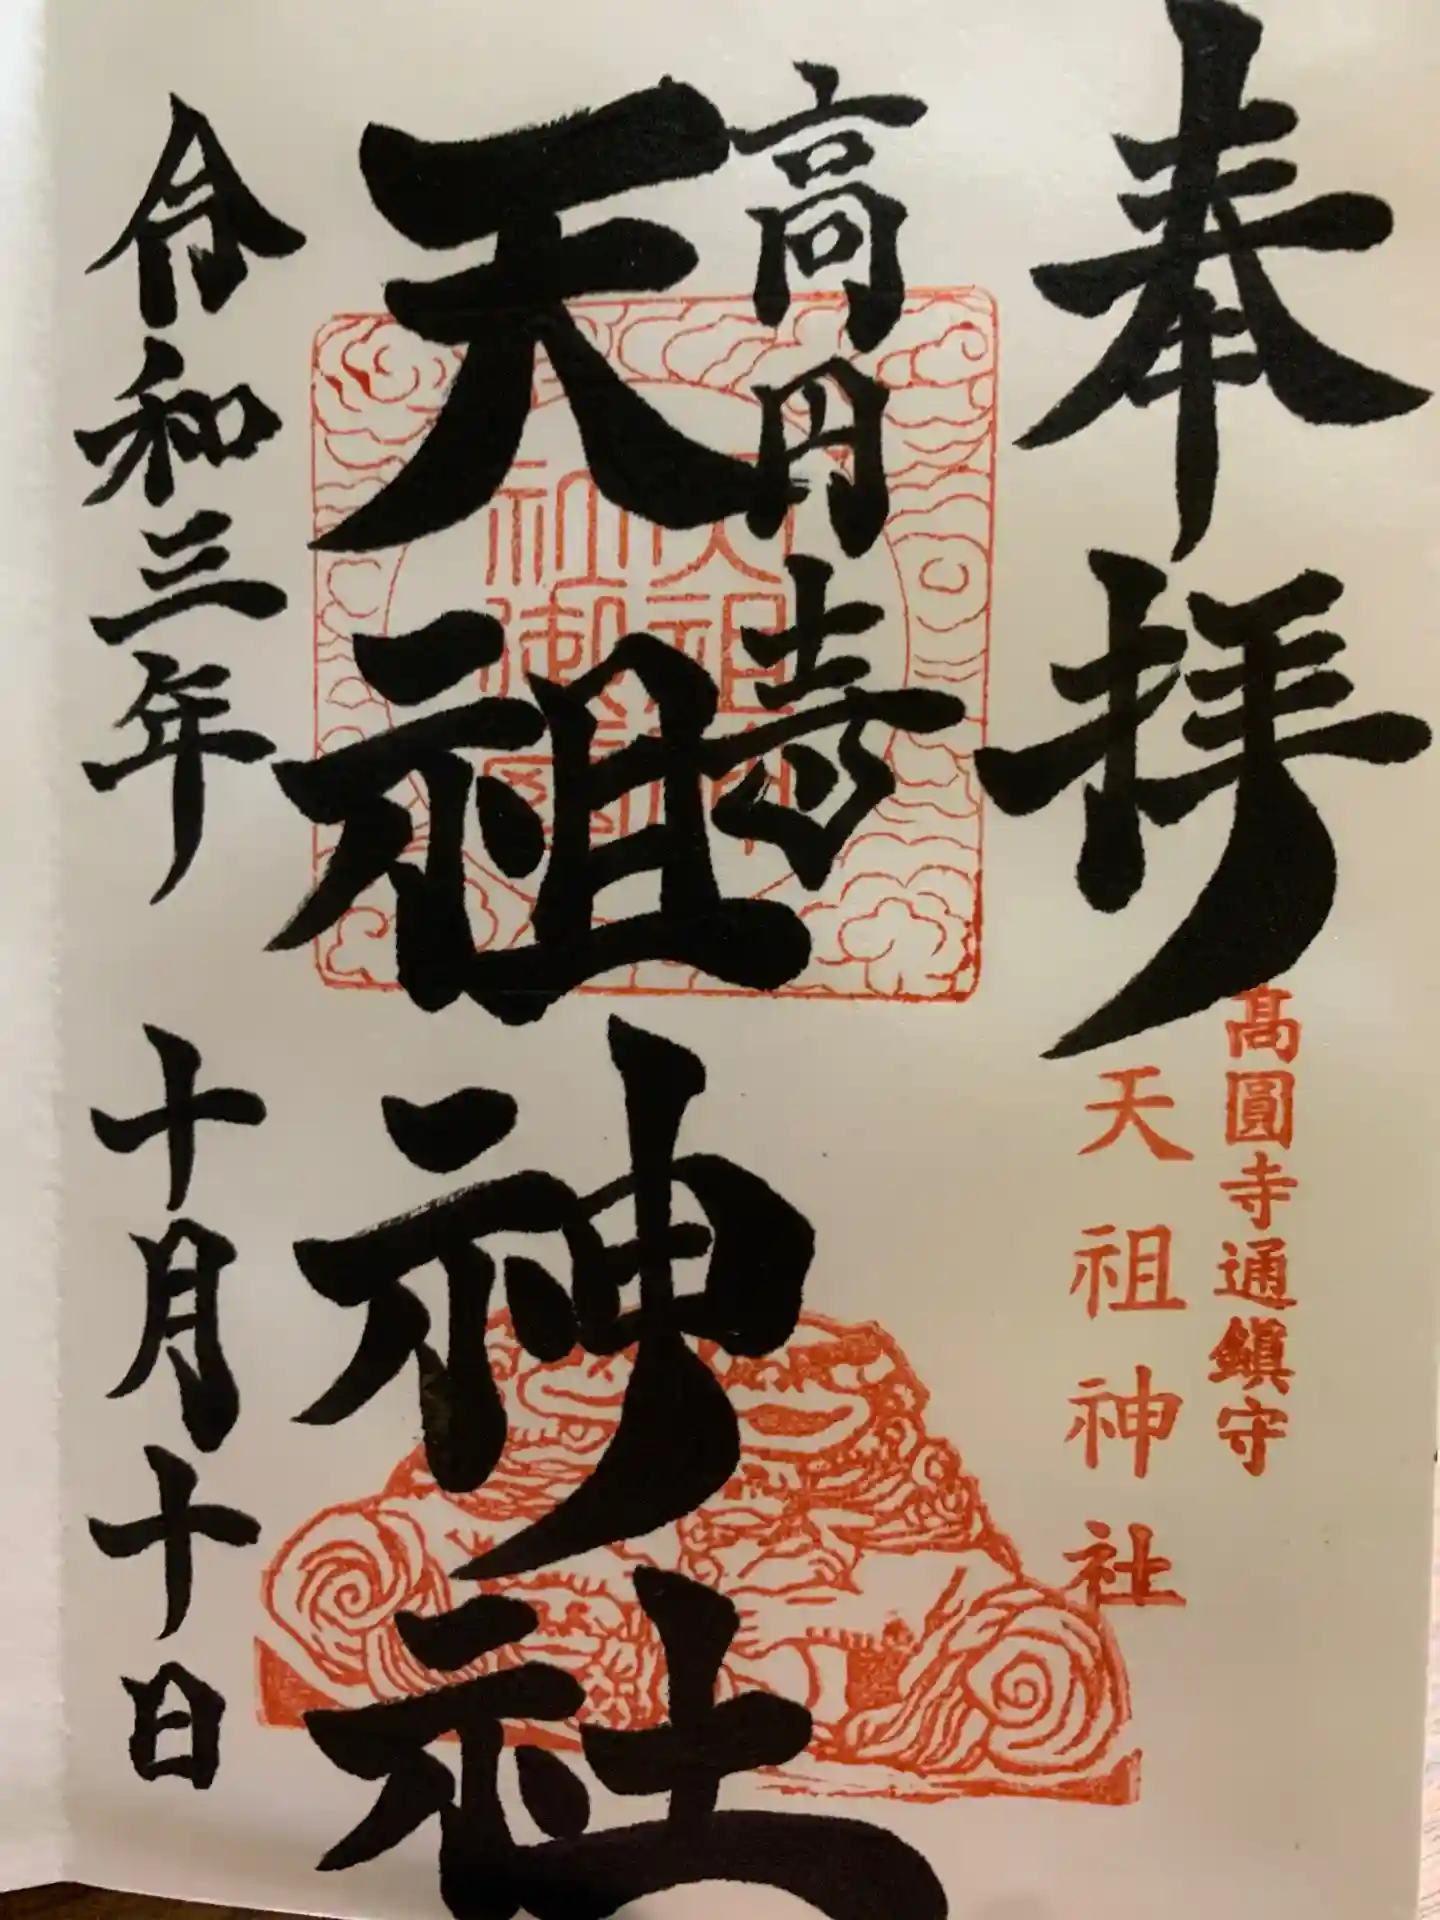 奉拝
髙圓寺通鎮守
天祖神社
高円寺
天祖神社
天祖神
社御璽
令和三年 十月十日